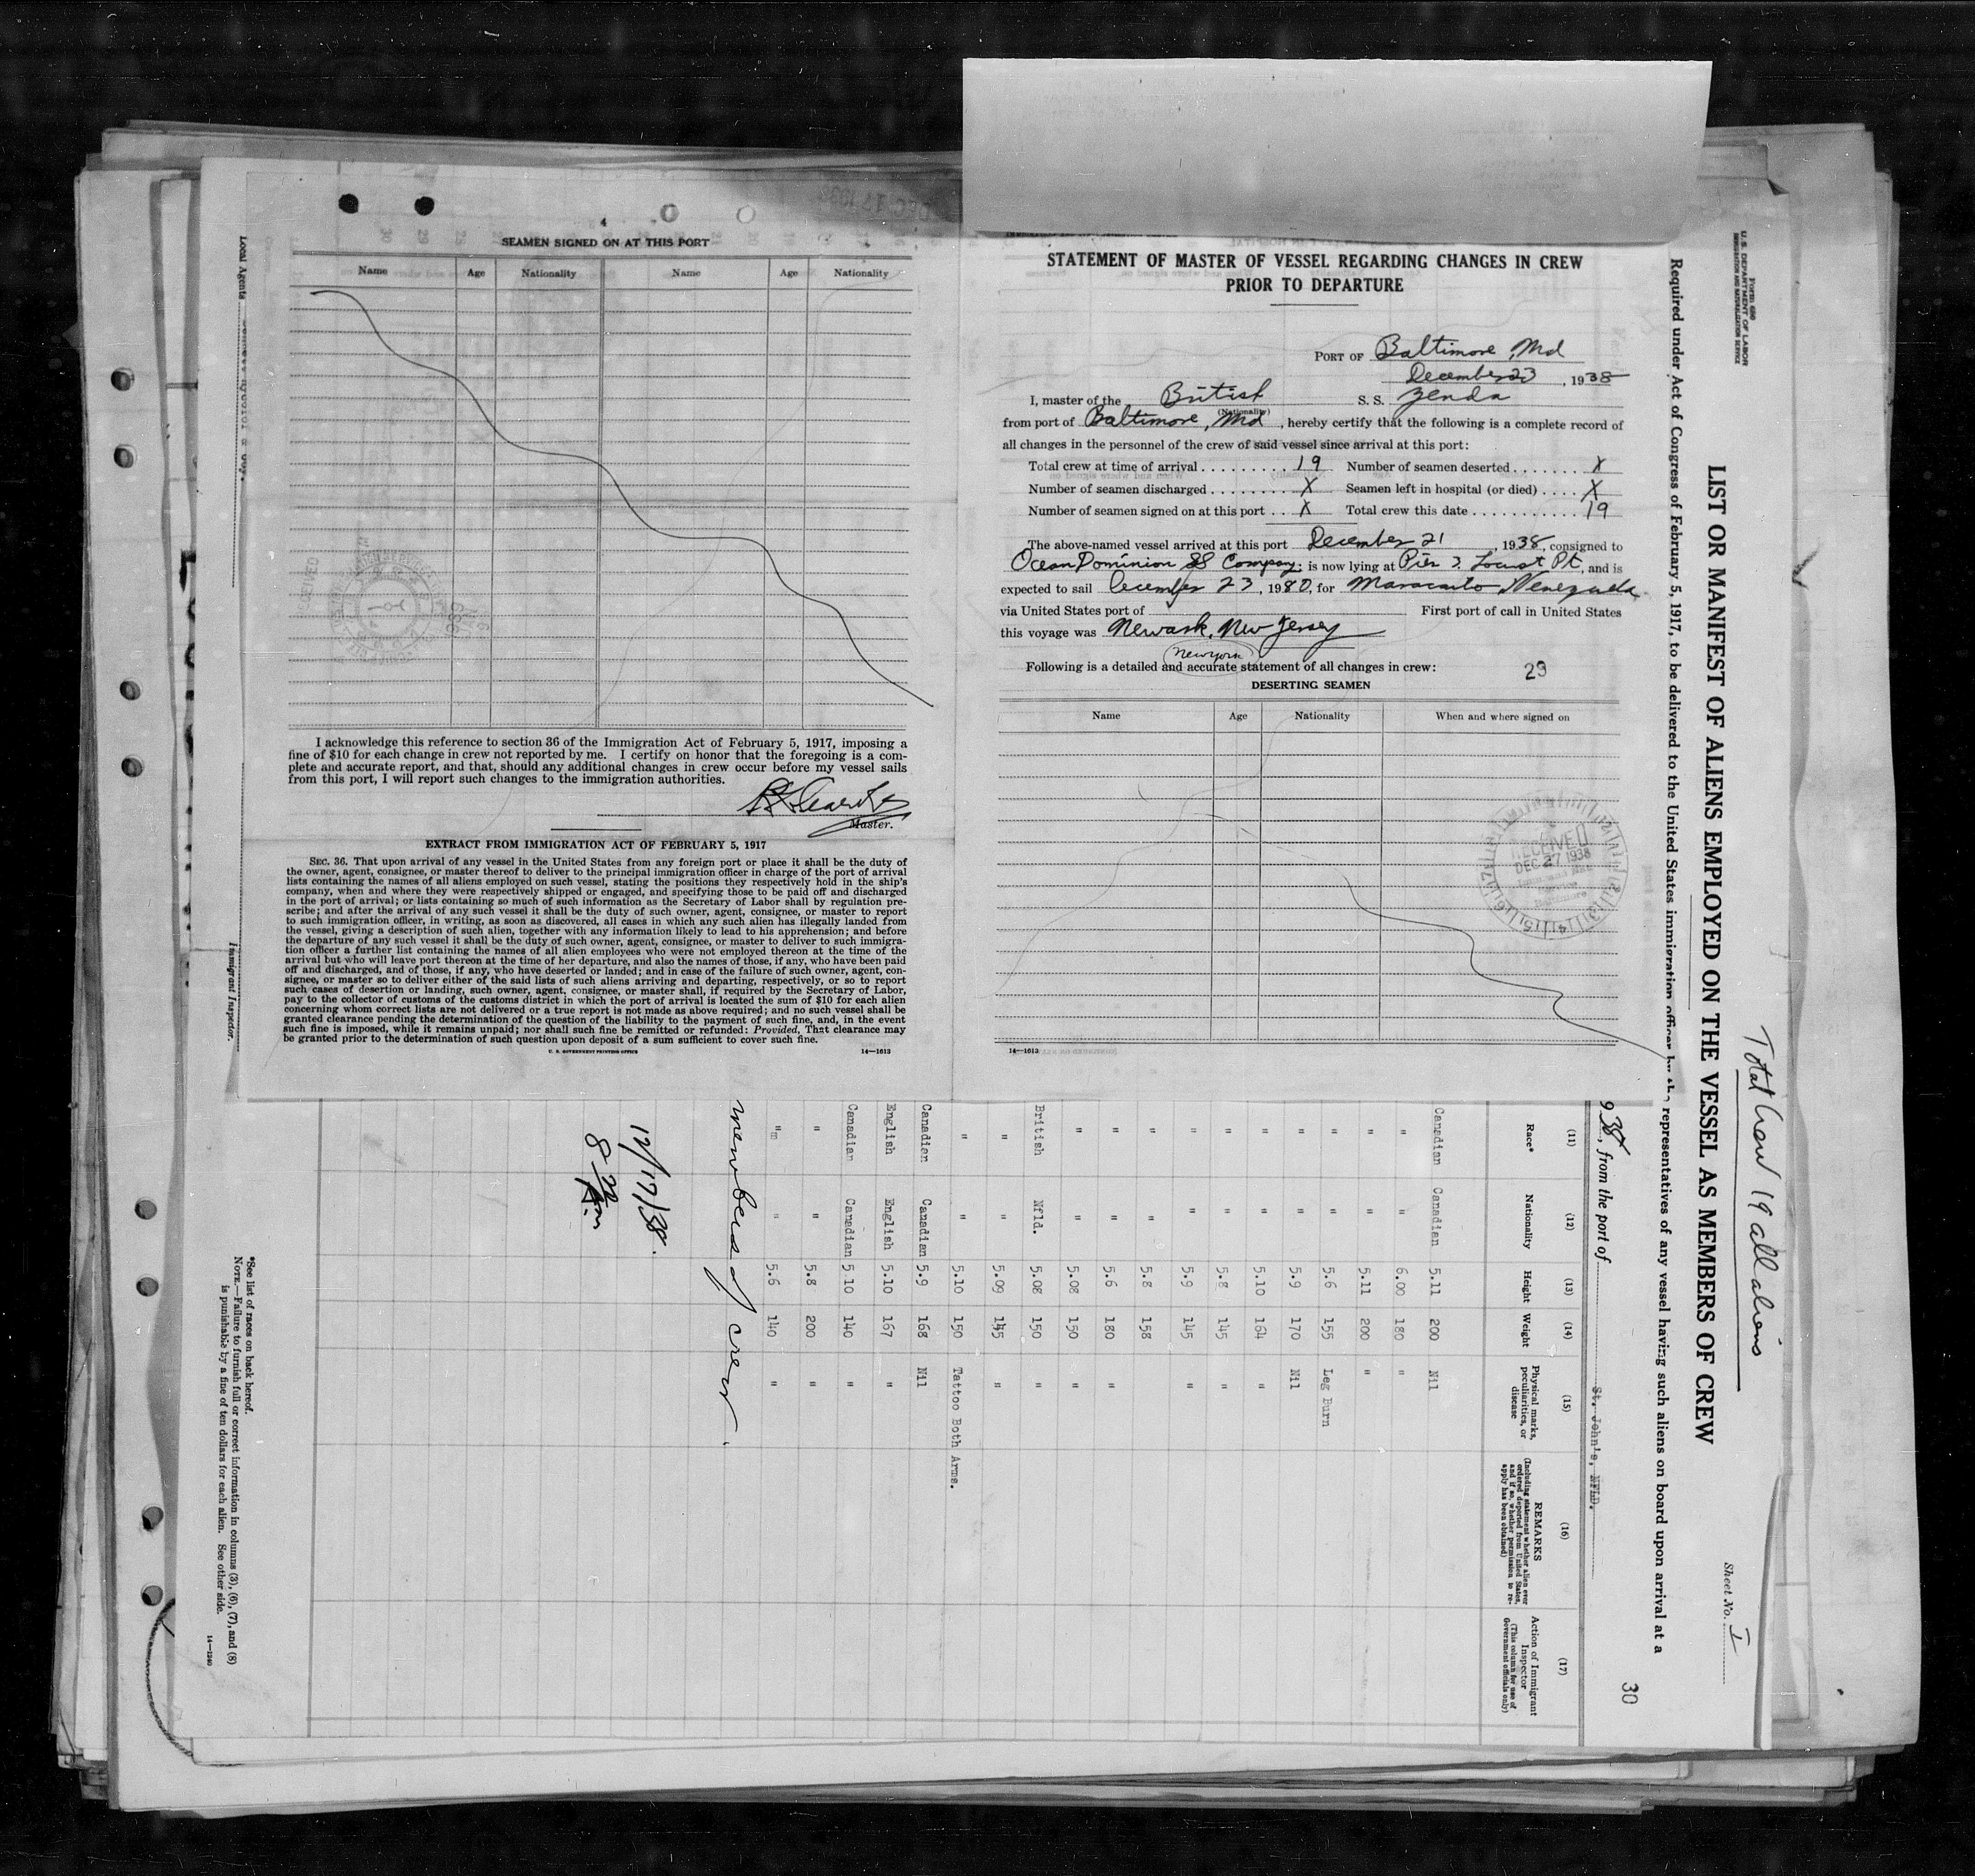 SEAMEN SIGNED ON AT THIS PORT
Name Age Nationality Name Age Nationality
I acknowledge this reference to section 36 of the Immigration Act of February 5, 1917, imposing a
fine of $10 for each change in crew not reported by me. I certify on honor that the foregoing is a com-
plete and accurate report, and that, should any additional changes in crew occur before my vessel sails
from this port, I will report such changes to the immigration authorities.
Master.
EXTRACT FROM IMMIGRATION ACT OF FEBRUARY 5, 1917
SEC. 36. That upon arrival of any vessel in the United States from any foreign port or place it shall be the duty of
the owner, agent, consignee, or master thereof to deliver to the principal immigration officer in charge of the port of arrival
lists containing the names of all aliens employed on such vessel, stating the positions they respectively hold in the ship's
company, when and where they were respectively shipped or engaged, and specifying those to be paid off and discharged
in the port of arrival; or lists containing so much of such information as the Secretary of Labor shall by regulation pre-
scribe; and after the arrival of any such vessel it shall be the duty of such owner, agent, consignee, or master to report
to such immigration officer, in writing, as soon as discovered, all cases in which any such alien has illegally landed from
the vessel, giving a description of such alien, together with any information likely to lead to his apprehension; and before
the departure of any such vessel it shall be the duty of such owner, agent, consignee, or master to deliver to such immigra-
tion officer a further list containing the names of all alien employees who were not employed thereon at the time of the
arrival but who will leave port thereon at the time of her departure, and also the names of those, if any, who have been paid
off and discharged, and of those, if any, who have deserted or landed; and in case of the failure of such owner, agent, con-
signee, or master so to deliver either of the said lists of such aliens arriving and departing, respectively, or so to report
such cases of desertion or landing, such owner, agent, consignee, or master shall, if required by the Secretary of Labor,
pay to the collector of customs of the customs district in which the port of arrival is located the sum of $10 for each alien
concerning whom correct lists are not delivered or a true report is not made as above required; and no such vessel shall be
granted clearance pending the determination of the question of the liability to the payment of such fine, and, in the event
such fine is imposed, while it remains unpaid; nor shall such fine be remitted or refunded: Provided, That clearance may
be granted prior to the determination of such question upon deposit of a sum sufficient to cover such fine.
U. S. GOVERNMENT PRINTING OFFICE 14—1613
STATEMENT OF MASTER OF VESSEL REGARDING CHANGES IN CREW
PRIOR TO DEPARTURE
PORT OF Baltimore, Md
December 23, 1938
I, master of the British S. S. Zenda
(Nationality)
from port of Baltimore, Md, hereby certify that the following is a complete record of
all changes in the personnel of the crew of said vessel since arrival at this port:
Total crew at time of arrival 19 Number of seamen deserted X
Number of seamen discharged X Seamen left in hospital (or died) X
Number of seamen signed on at this port X Total crew this date 19
The above-named vessel arrived at this port December 21, 1938, consigned to
Ocean Dominion SS Company; is now lying at Pier Locust Pt, and is
expected to sail December 23, 19 , for Maracaibo Venezuela
via United States port of First port of call in United States
this voyage was Newark, New Jersey
New York
Following is a detailed and accurate statement of all changes in crew: 29
DESERTING SEAMEN
Name Age Nationality When and where signed on
RECEIVED
DEC 27 1938
14—1613
Local Agents
Immigrant Inspector.
Form 680
U. S. DEPARTMENT OF LABOR
IMMIGRATION AND NATURALIZATION SERVICE
Total Crew 19 all aliens
Sheet No. I
LIST OR MANIFEST OF ALIENS EMPLOYED ON THE VESSEL AS MEMBERS OF CREW
Required under Act of Congress of February 5, 1917, to be delivered to the United States immigration officer by the representatives of any vessel having such aliens on board upon arrival at a
30
938, from the port of St. John's, NFLD.
(11) (12) (13) (14) (15) (16) (17)
Race* Nationality Height Weight Physical marks, peculiarities, or disease REMARKS (Including statement whether alien ever ordered deported from United States, and if so, whether permission to re-apply has been obtained) Action of Immigrant Inspector (This column for use of Government officials only)
Canadian Canadian 5.11 200 Nil
" " 6.00 180 "
" " 5.11 200 "
" " 5.6 155 Leg Burn
" " 5.9 170 Nil
" " 5.10 164 "
" " 5.8 145 "
" " 5.9 145 "
" " 5.8 158
" " 5.6 180 "
" " 5.08 150 "
British Nfld. 5.08 150 "
" " 5.09 145 "
" " 5.10 150 Tattoo Both Arms.
Canadian Canadian 5.9 168 Nil
English English 5.10 167 "
Canadian Canadian 5.10 140 "
" " 5.8 200 "
" " 5.6 140 "
members of crew.
12/17/38.
8
*See list of races on back hereof.
NOTE.—Failure to furnish full or correct information in columns (3), (6), (7), and (8)
is punishable by a fine of ten dollars for each alien. See other side.
14—1240